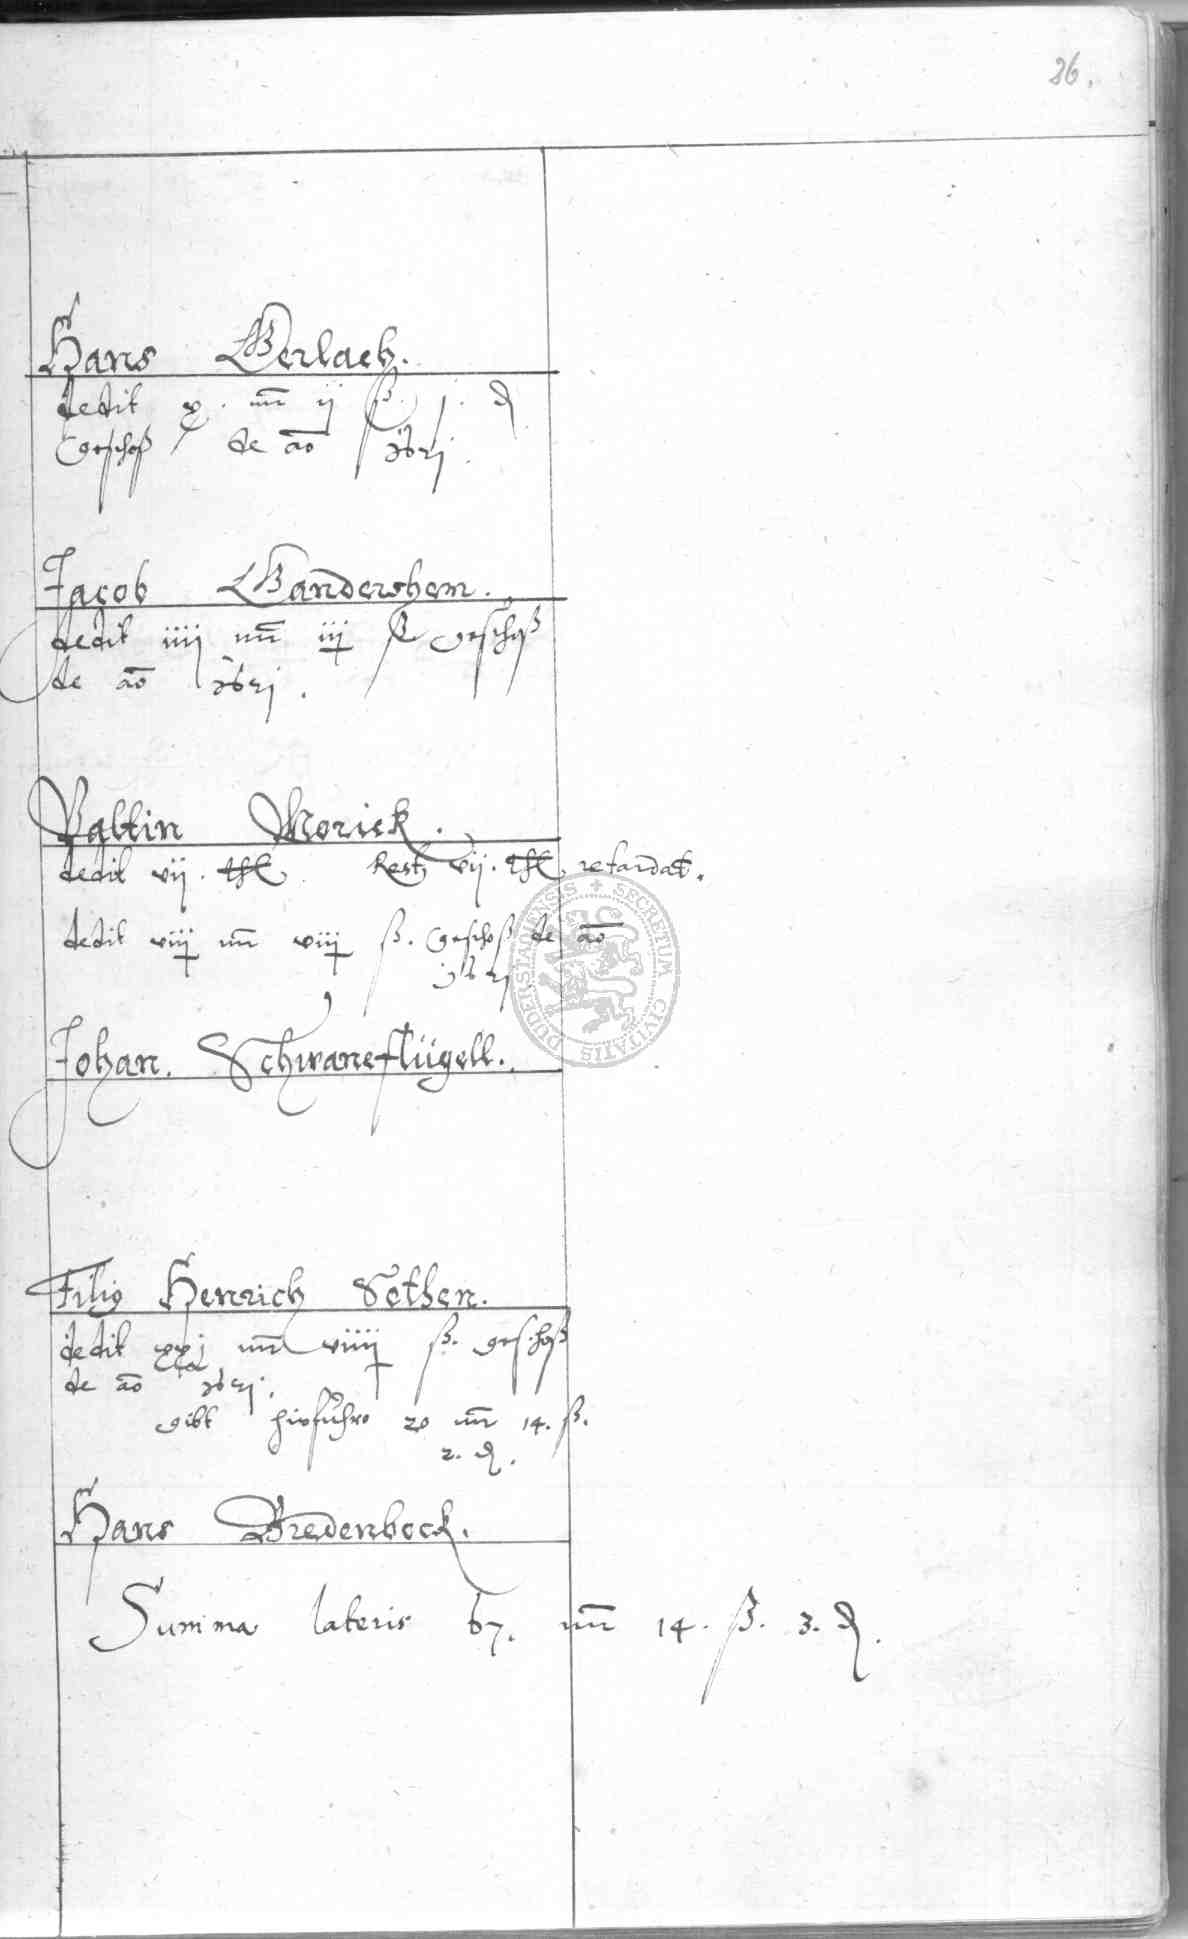 26.
Hans Gerlach.
dedit x. mr ij ß. j. d
Geschoß de ao 1621.
Jacob Gandershem.
dedit iiij mr iij ß geschoß
de ao 1621.
Valtin Morick.
dedit vij. thl. Rest vij. thl. retardat.
dedit viij mr viij ß. Geschoß de ao
1621
Johan. Schwaneflügell.
Filig Henrich Sothen.
dedit xxj mr viiij ß. geschoß
de ao 1621.
gibt hinführo 20 mr 14. ß.
2. d.
Hans Bredenbock.
Summa lateris 67. mr 14. ß. 3. d.
SECRETUM CIVITATIS DUDERSTADIENSIS